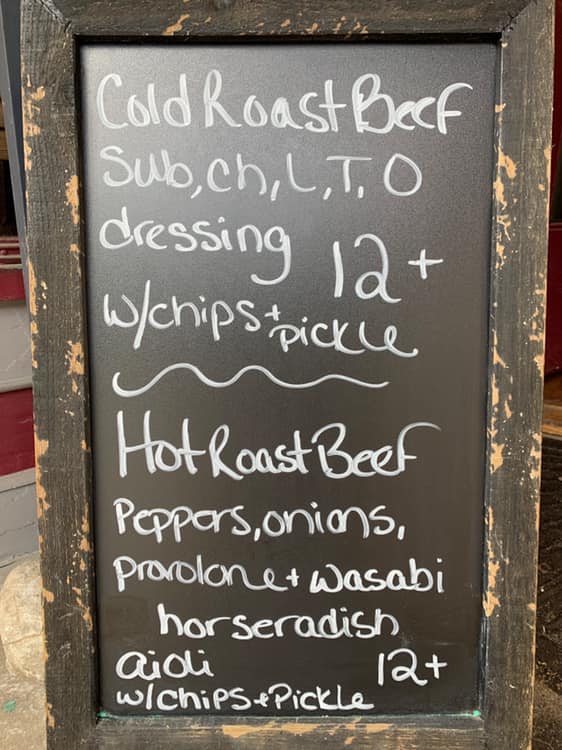 Cold Roast Beef
Sub, ch, L, T, O
dressing 12+
w/chips + pickle
Hot Roast Beef
Peppers, onions,
provolone + wasabi
horseradish
aioli 12+
w/chips + Pickle